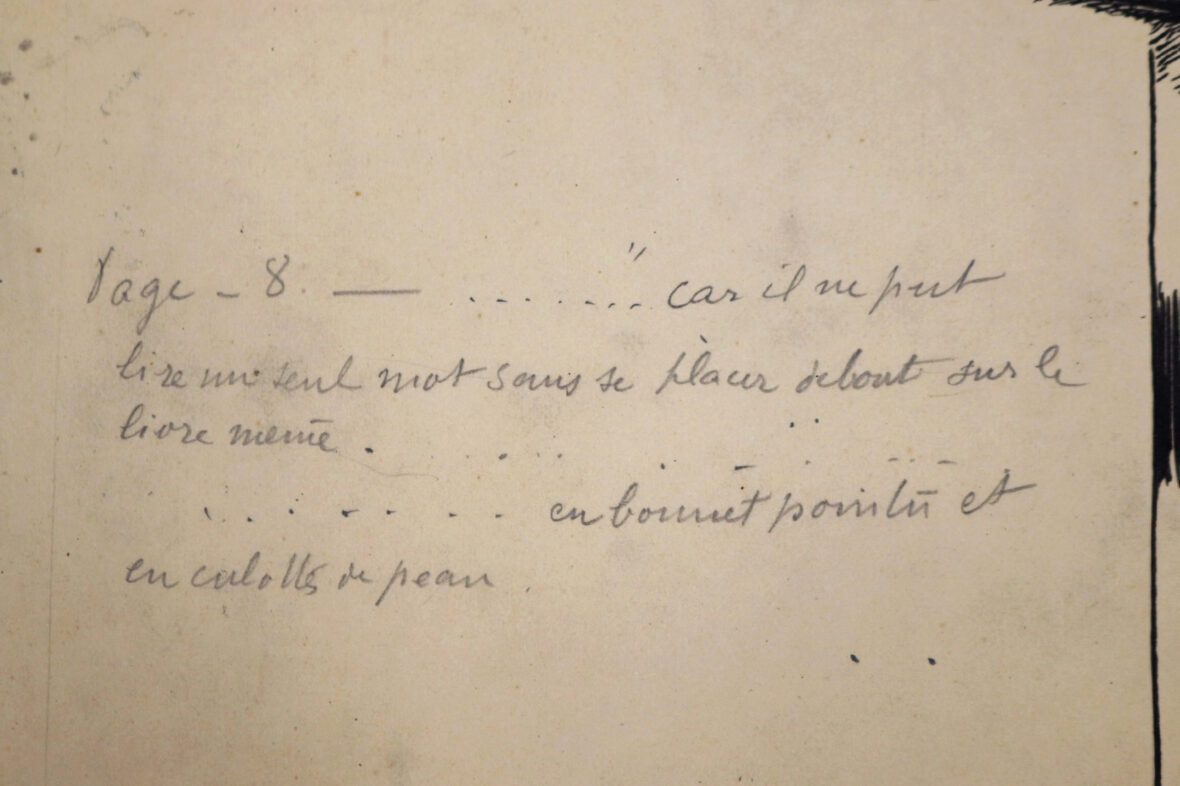 Page - 8. — ........ " car il ne peut
lire un seul mot sans se placer debout sur le
livre même .
. . . . . . . . en bonnet pointu et
en culotte de peau .